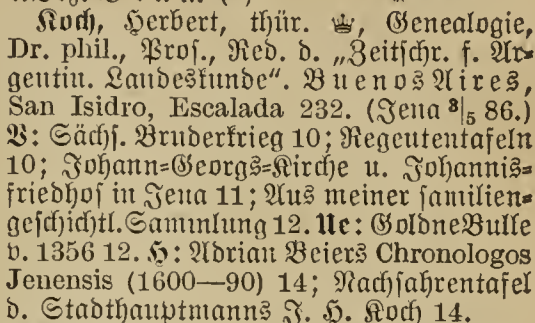 Koch, Herbert, thür. ♕, Genealogie,
Dr. phil., Prof., Red. d. „Zeitschr. f. Ar=
gentin. Landeskunde“. Buenos Aires,
San Isidro, Escalada 232. (Jena 8|5 86.)
V: Sächs. Bruderkrieg 10; Regententafeln
10; Johann=Georgs=Kirche u. Johannis=
friedhof in Jena 11; Aus meiner familien=
geschichtl. Sammlung 12. Ue: Goldne Bulle
v. 1356 12. H: Adrian Beiers Chronologos
Jenensis (1600—90) 14; Nachfahrentafel
d. Stadthauptmanns J. H. Koch 14.